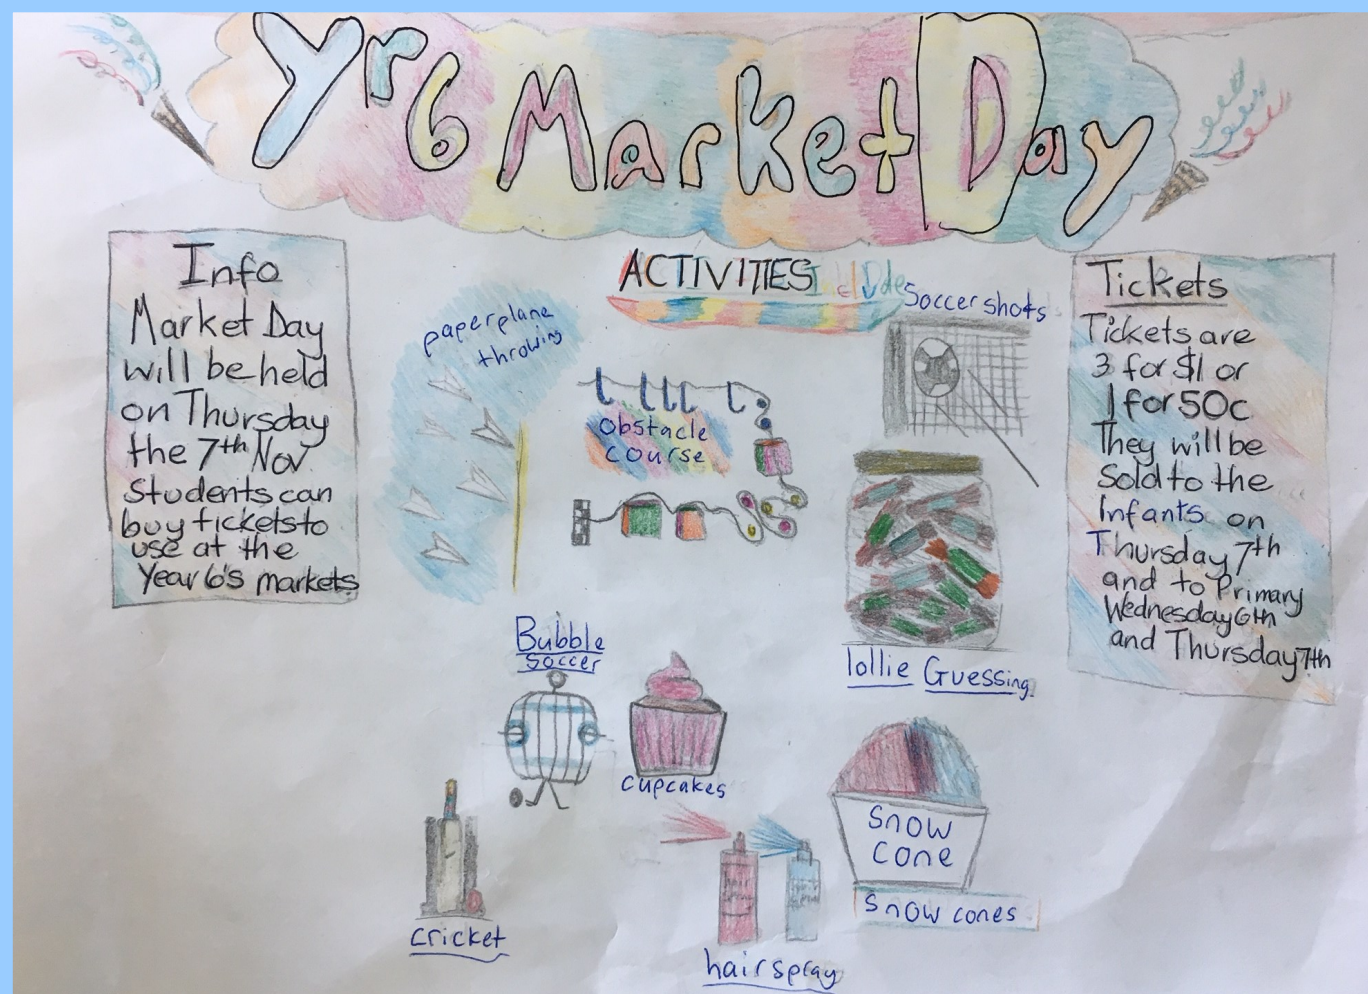 Yr 6 Market Day
Info
Market Day
will be held
on Thursday
the 7th Nov.
Students can
buy tickets to
use at the
Year 6's markets
ACTIVITIES Include
paper plane
throwing
Obstacle
course
Soccer shots
lollie Guessing
Bubble
soccer
cupcakes
cricket
hair spray
Snow
cone
Snow cones
Tickets
Tickets are
3 for $1 or
1 for 50c
They will be
Sold to the
Infants on
Thursday 7th
and to Primary
Wednesday 6th
and Thursday 7th